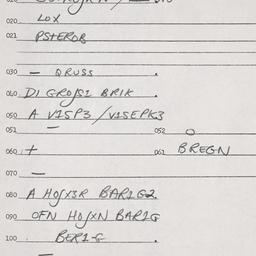 020 LOX
021 PSTEROB
030 — QRUSS .
040 DI GROJSI BRIK .
050 A V1SP3 / V1SEPK3
051 — 052 O
060 + 061 BREGN
070 —
080 A HOJX3R BAR1G2
090 OFN HOJXN BAR1G
100 BER1-G .
—